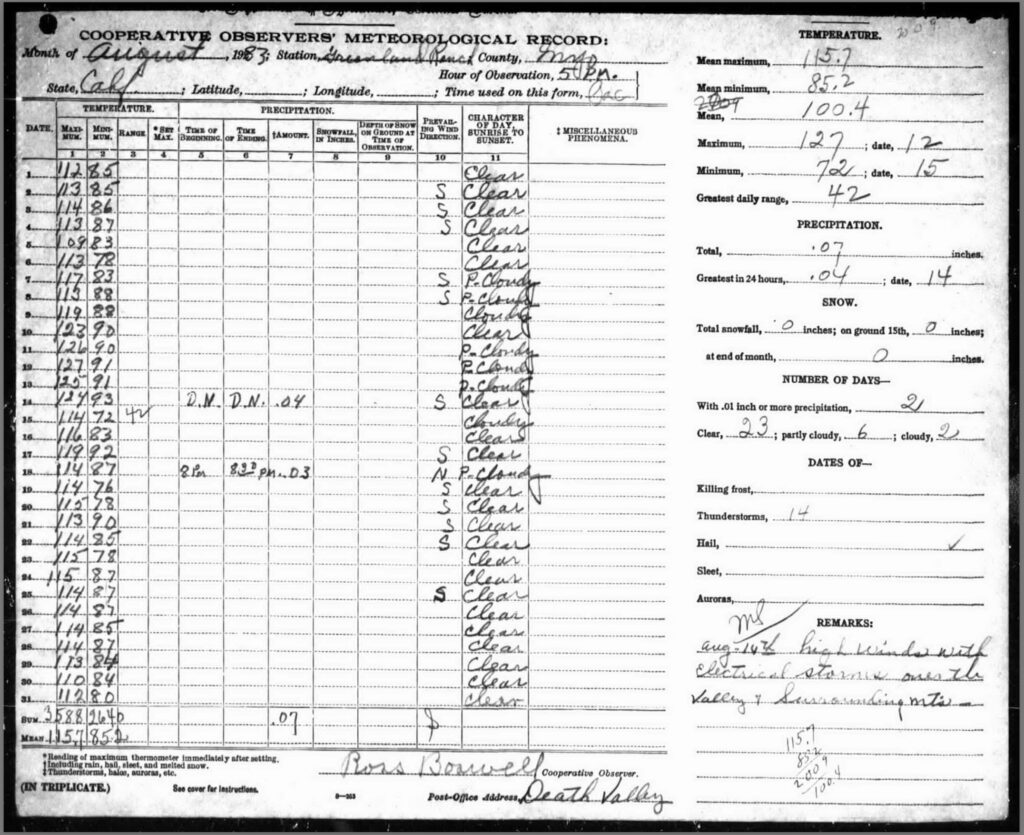 COOPERATIVE OBSERVERS' METEOROLOGICAL RECORD:
Month of August, 1933; Station, Greenland Ranch County, Inyo
Hour of Observation, 5 P.M.
State, Calif ; Latitude, ; Longitude, ; Time used on this form, Pac
DATE. TEMPERATURE. PRECIPITATION. PREVAILING WIND DIRECTION. CHARACTER OF DAY, SUNRISE TO SUNSET. ‡ MISCELLANEOUS PHENOMENA.
MAXIMUM. MINIMUM. RANGE. *SET MAX. TIME OF BEGINNING. TIME OF ENDING. †AMOUNT. SNOWFALL, IN INCHES. DEPTH OF SNOW ON GROUND AT TIME OF OBSERVATION.
1 2 3 4 5 6 7 8 9 10 11
1 112 85 Clear
2 113 85 S Clear
3 114 86 S Clear
4 113 87 S Clear
5 109 83 Clear
6 113 78 Clear
7 117 83 S P. Cloudy
8 113 88 S P. Cloudy
9 119 88 Cloudy
10 123 90 Clear
11 126 90 P. Cloudy
12 127 91 P. Cloudy
13 125 91 P. Cloudy
14 124 93 D.N. D.N. .04 S Clear
15 114 72 42 Cloudy
16 116 83 Clear
17 119 92 S Clear
18 114 87 8 Pm 8 30 pm .03 N P. Cloudy
19 114 76 S Clear
20 115 78 S Clear
21 113 90 S Clear
22 114 85 S Clear
23 115 78 Clear
24 115 87 Clear
25 114 87 S Clear
26 114 87 Clear
27 114 85 Clear
28 114 87 Clear
29 113 84 Clear
30 110 84 Clear
31 112 80 Clear
SUM 3588 2640 .07 S
MEAN 115.7 85.2
*Reading of maximum thermometer immediately after setting.
†Including rain, hail, sleet, and melted snow.
‡Thunderstorms, halos, auroras, etc.
(IN TRIPLICATE.) See cover for instructions.
Ross Boswell Cooperative Observer.
Post-Office Address, Death Valley
TEMPERATURE. 2009
Mean maximum, 115.7
Mean minimum, 85.2
2009
Mean, 100.4
Maximum, 127 ; date, 12
Minimum, 72 ; date, 15
Greatest daily range, 42
PRECIPITATION.
Total, .07 inches.
Greatest in 24 hours, .04 ; date, 14
SNOW.
Total snowfall, 0 inches; on ground 15th, 0 inches;
at end of month, 0 inches.
NUMBER OF DAYS—
With .01 inch or more precipitation, 2
Clear, 23 ; partly cloudy, 6 ; cloudy, 2
DATES OF—
Killing frost,
Thunderstorms, 14
Hail, ✓
Sleet,
Auroras,
REMARKS:
Aug-14th high winds with
electrical storms over the
valley & surrounding mts-
115.7
85.2
2009
100.4